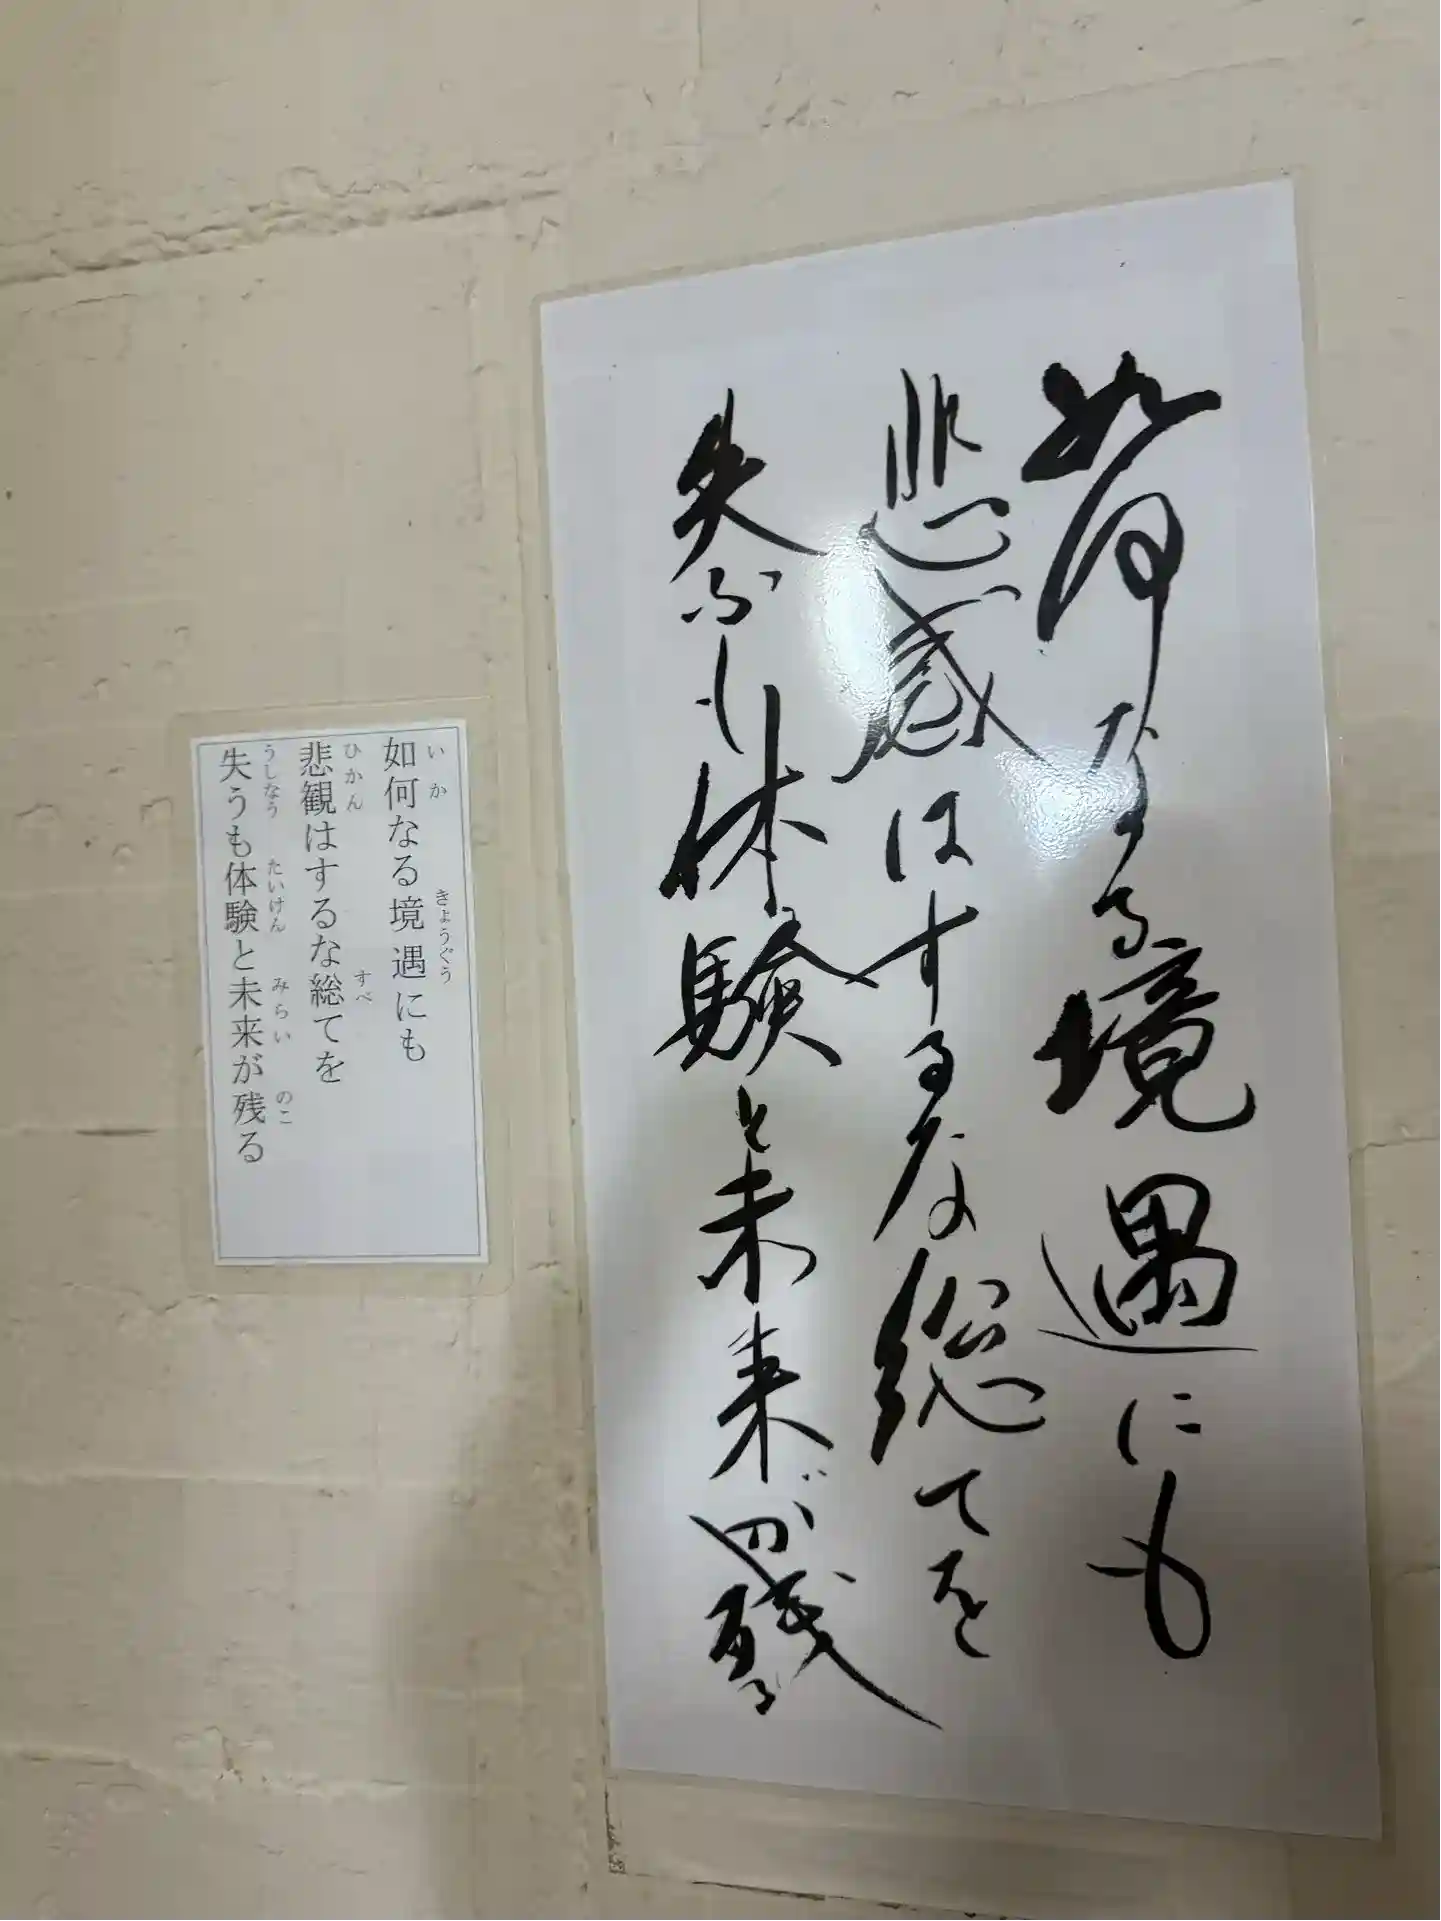 如何なる境遇にも
悲感はするな総てを
失ふも体験と未来が残る
如何なる境遇にも
いか
きょうぐう
悲観はするな総てを
ひかん
すべ
失うも体験と未来が残る
うしなう
たいけん
みらい
のこ